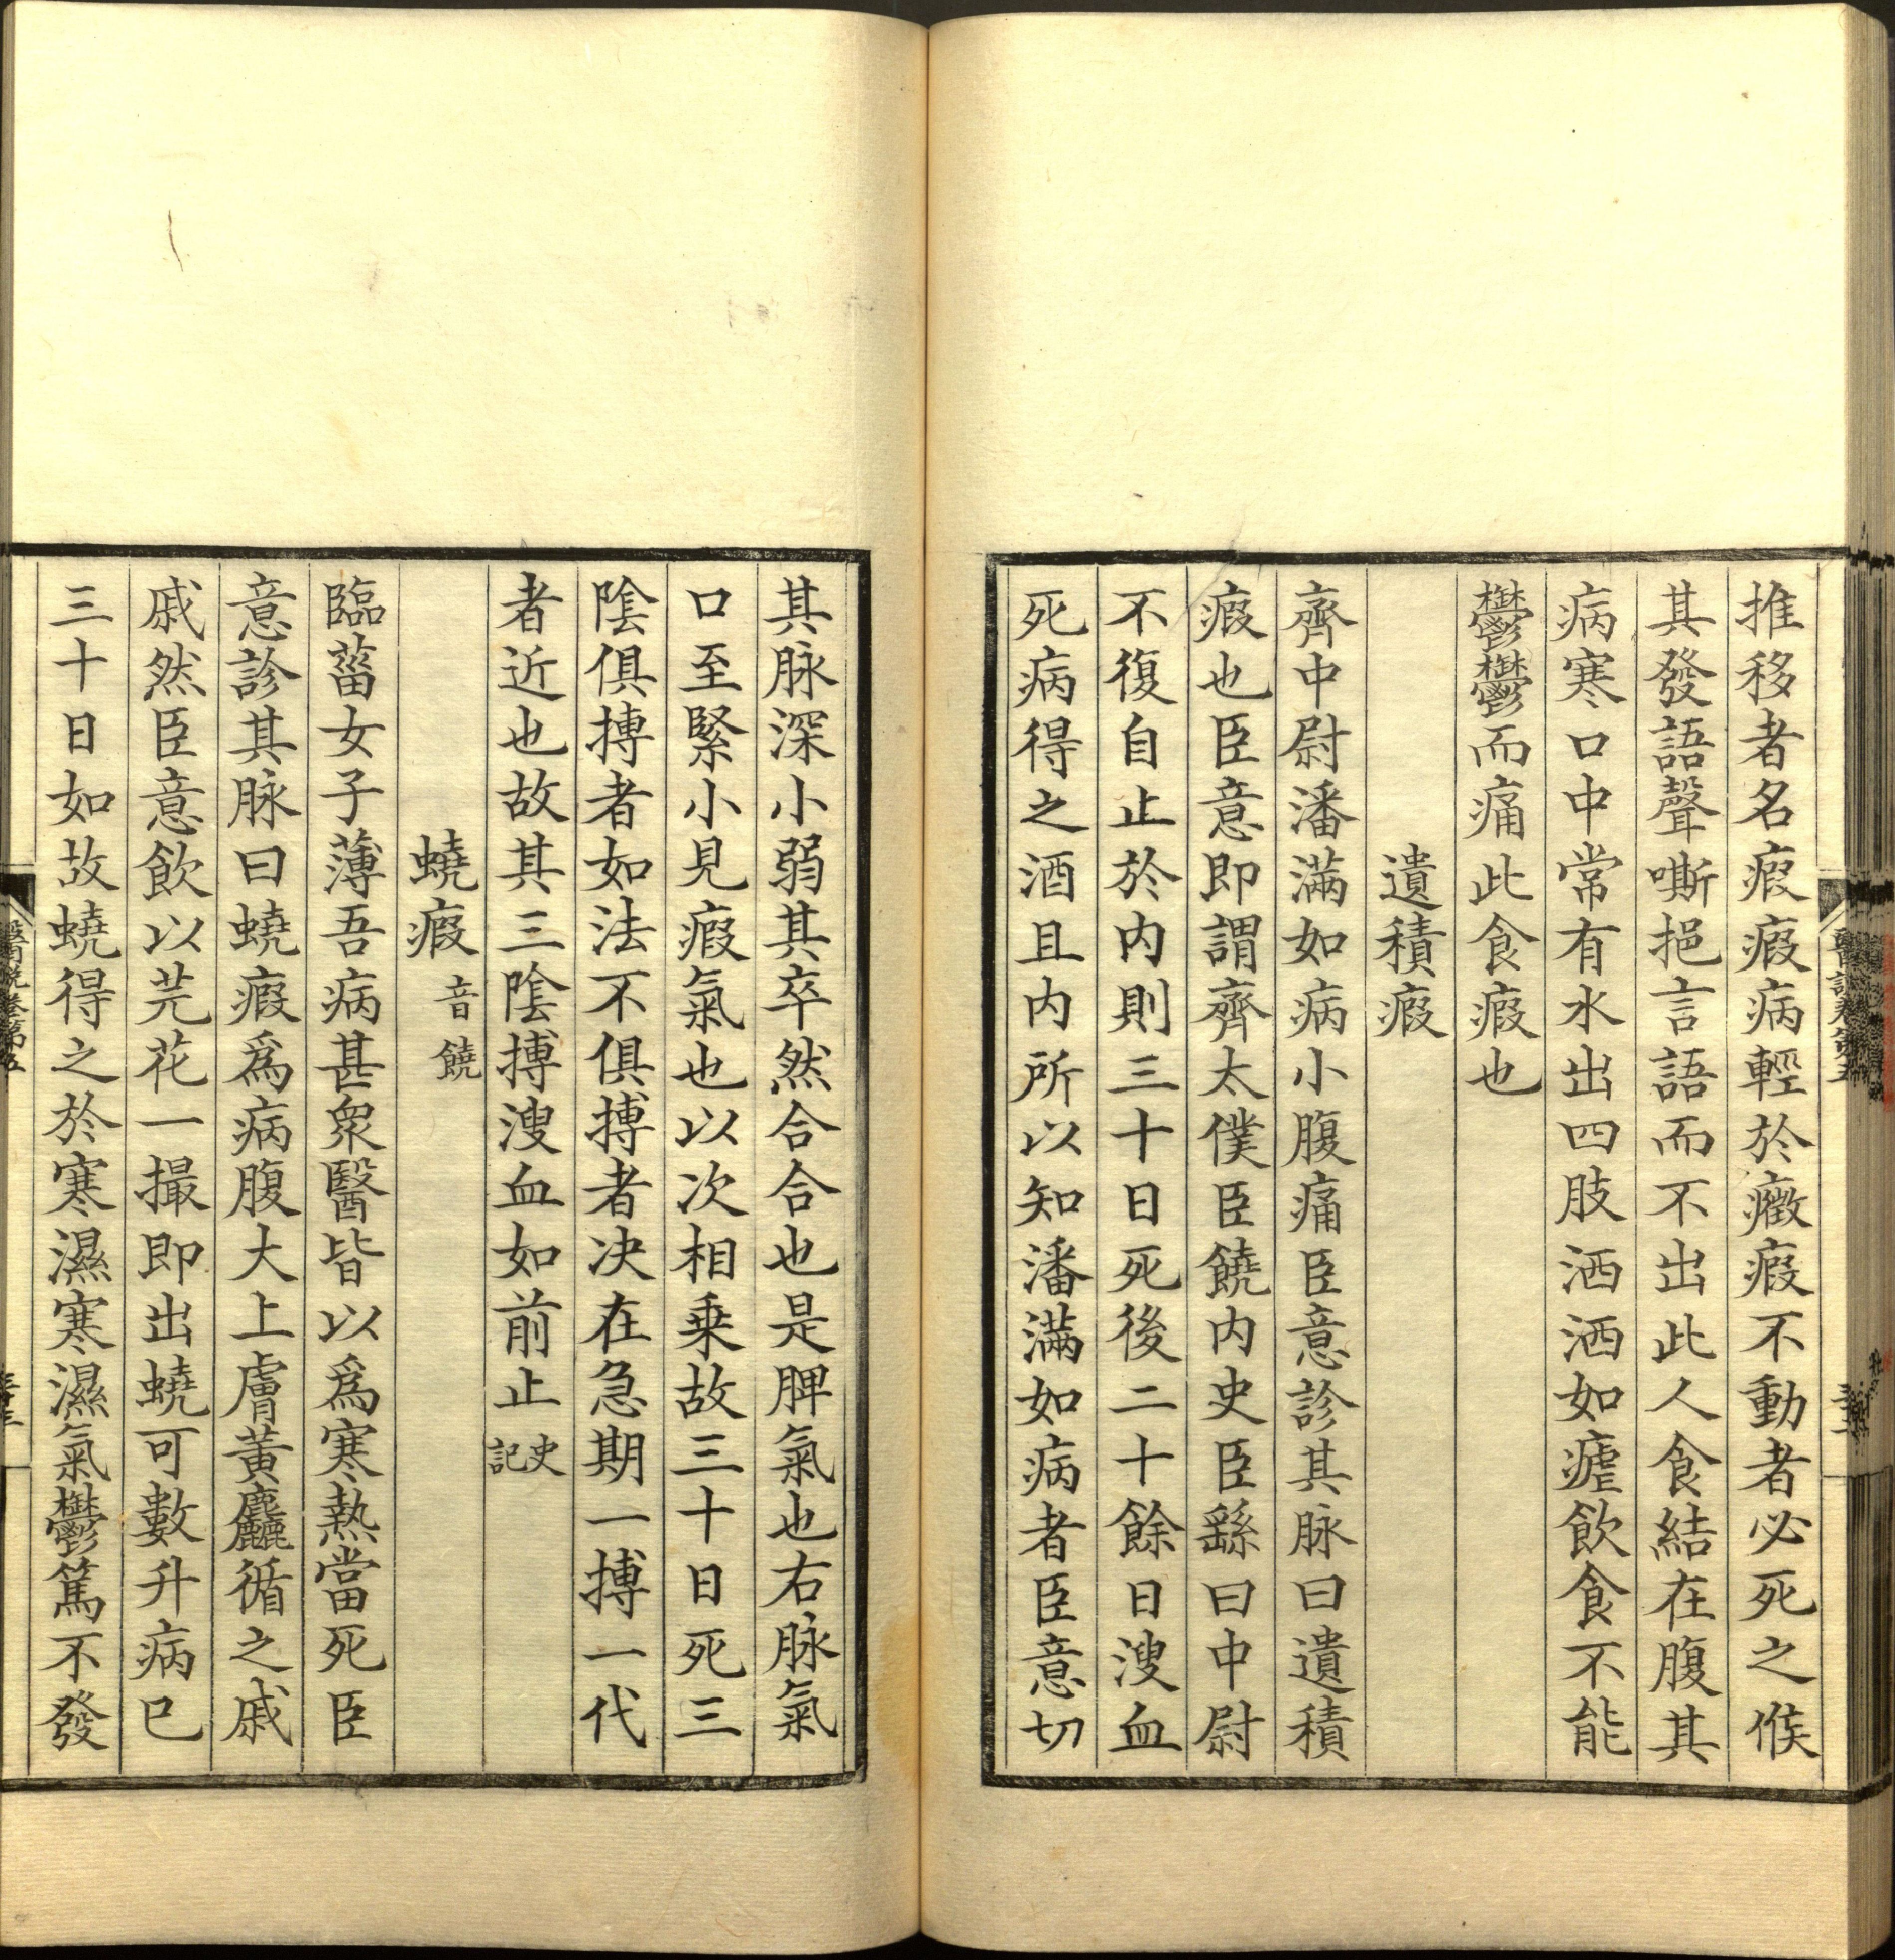 推移者名瘕瘕病輕於癥瘕不動者必死之候
其發語聲嘶挹言語而不出此人食結在腹其
病寒口中常有水出四肢洒洒如瘧飲食不能
鬱鬱而痛此食瘕也
遺積瘕
齊中尉潘滿如病小腹痛臣意診其脉曰遺積
瘕也臣意即謂齊太僕臣饒内史臣繇曰中尉
不復自止於内則三十日死後二十餘日溲血
死病得之酒且内所以知潘滿如病者臣意切
其脉深小弱其卒然合合也是脾氣也右脉氣
口至緊小見瘕氣也以次相乗故三十日死三
陰俱搏者如法不俱搏者决在急期一搏一代
者近也故其三陰搏溲血如前止史記
蟯瘕音饒
臨菑女子薄吾病甚衆醫皆以爲寒熱當死臣
意診其脉曰蟯瘕爲病腹大上膚黃麤循之戚
戚然臣意飲以芫花一撮即出蟯可數升病巳
三十日如故蟯得之於寒濕寒濕氣鬱篤不發
醫説卷第五